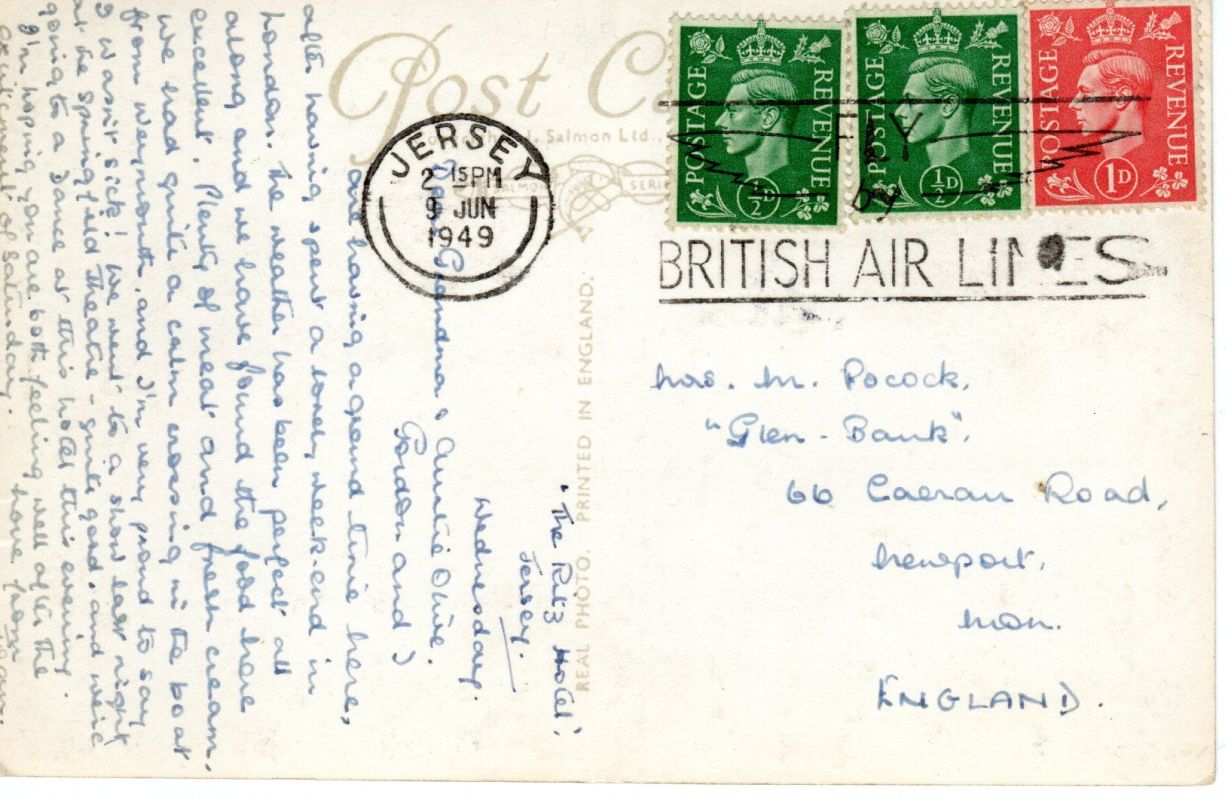 Post Ca
Salmon Ltd.,
SALMON
SERIE
JERSEY
2 15PM
9 JUN
1949
POSTAGE REVENUE
½D
POSTAGE REVENUE
½D
POSTAGE REVENUE
1D
FLY
by
BRITISH AIR LINES
REAL PHOTO. PRINTED IN ENGLAND.
'The Ritz Hotel',
Jersey.
Wednesday.
Dear Grandma & Auntie Olive.
Gordon and I
are having a grand time here,
after having spent a lovely week-end in
London. The weather has been perfect all
along and we have found the food here
excellent. Plenty of meat and fresh cream.
We had quite a calm crossing in the boat
from Weymouth, and I'm very proud to say
I wasn't sick! We went to a show last night
at the Springfield Theatre - quite good, and we're
going to a dance at this hotel this evening.
I'm hoping you are both feeling well after the
excitement of Saturday.
Love from
Jean.
Mrs. M. Pocock,
"Glen-Bank",
66 Caerau Road,
Newport,
Mon.
ENGLAND.